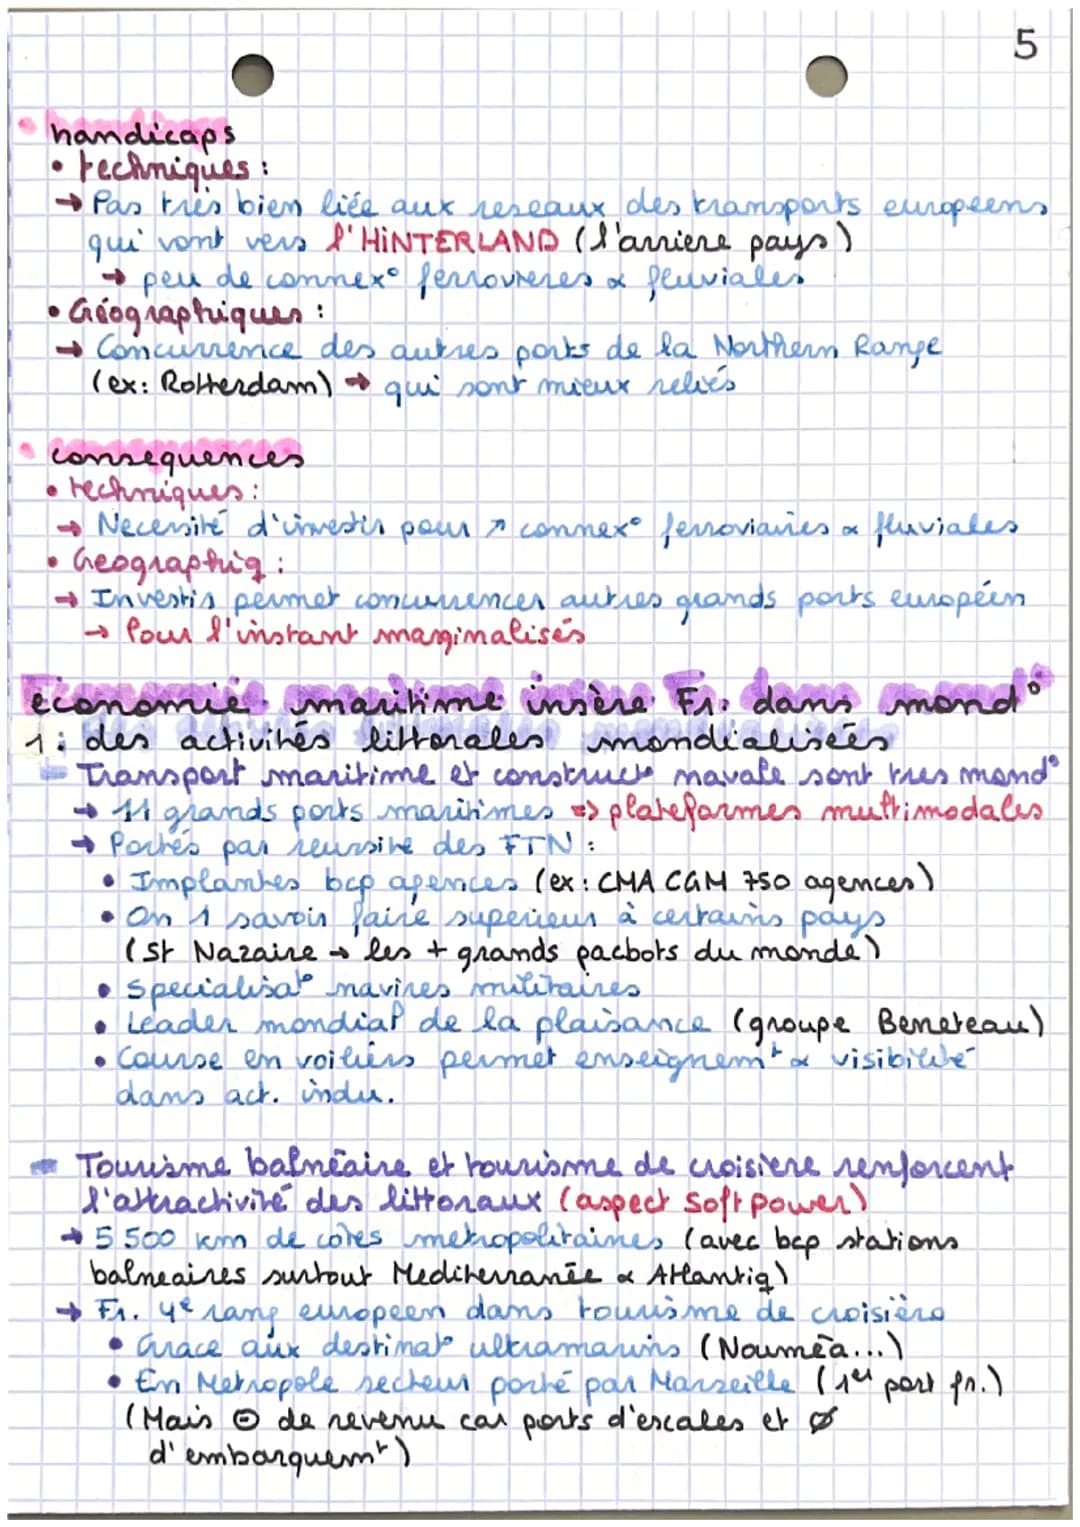 5
handicaps
• techniques :
→ Pas très bien liée aux reseaux des transports européens
qui vont vers l'HINTERLAND (l'arriere pays)
→ peu de connex° ferrovieres & fluviales
• Géographiques :
→ Concurrence des autres ports de la Northern Range
(ex: Rotterdam) → qui sont mieux reliés
consequences
• techniques :
→ Necessité d'investir pour ↗ connex° ferroviaires & fluviales
• Geographiq :
→ Investir permet concurrencer autres grands ports européen
→ Pour l'instant marginalisés
economie maritime insère Fr. dans mond°
1 : des activités littorales mondialisées
- Transport maritime et construct° navale sont tres mond°
→ 11 grands ports maritimes => plateformes multimodales
→ Portés par reussite des FTN :
• Implantes bcp agences (ex : CMA CGM 750 agences)
• On 1 savoir faire superieur à certains pays
(St Nazaire → les + grands pacbots du monde)
• Specialisat° navires militaires
• Leader mondial de la plaisance (groupe Beneteau)
• Course en voiliers permet enseignemt & visibilité
dans act. indu.
- Tourisme balnéaire et tourisme de croisiere renforcent
l'attractivité des littoraux (aspect soft power)
→ 5 500 km de côtes metropolitaines (avec bcp stations
balneaires surtout Mediterranée & Atlantiq)
→ Fr. 4e rang europeen dans tourisme de croisière
• Grace aux destinat° ultramarins (Nouméa...)
• En Metropole secteur porté par Marseille (1er port fr.)
(Mais ⊖ de revenu car ports d'escales et ∅
d'embarquemt)